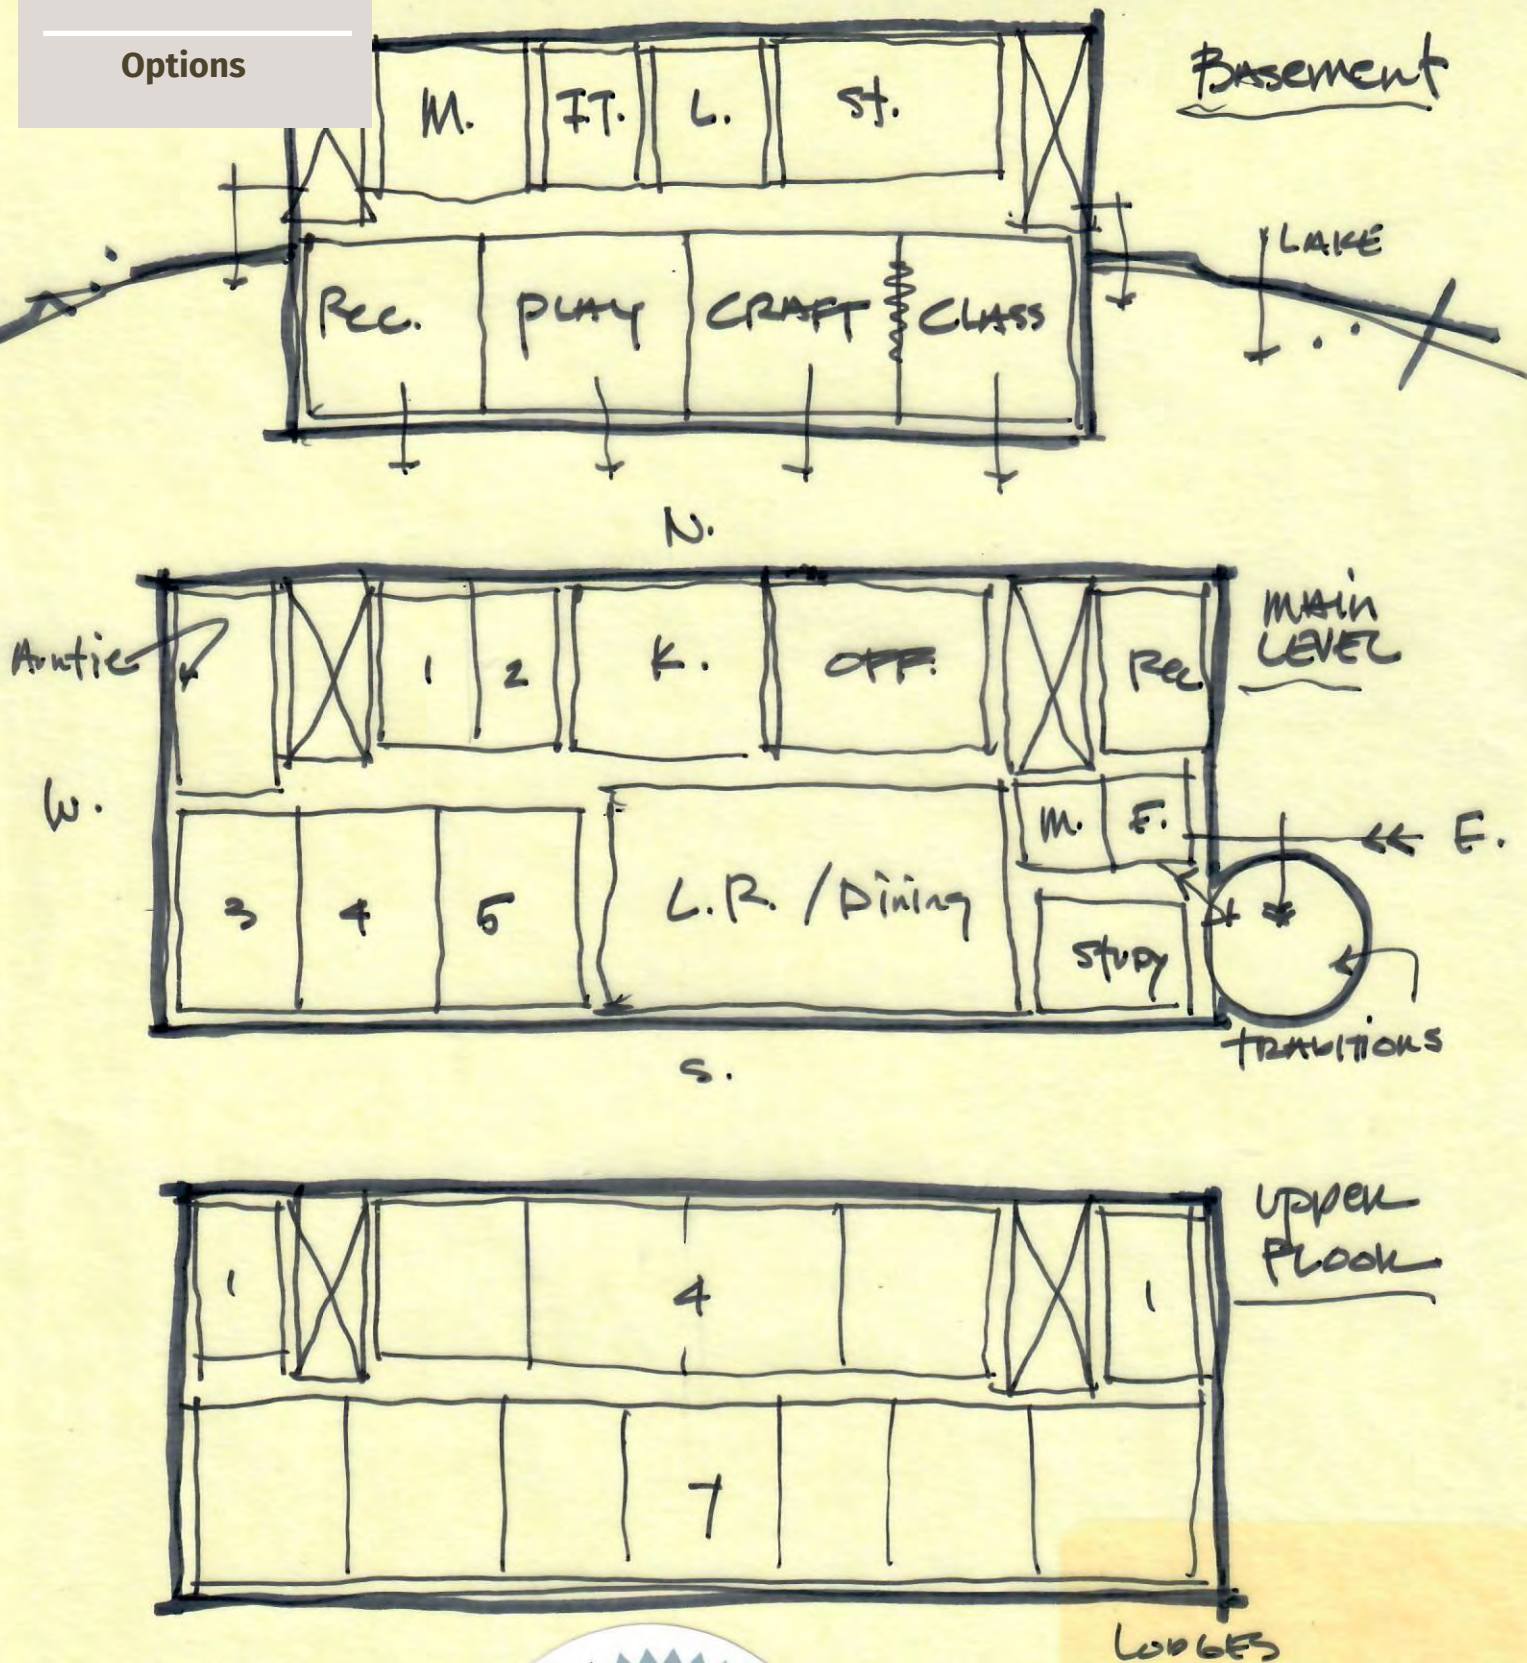 Options
Basement
M.
I.T.
L.
St.
LAKE
Rec.
PLAY
CRAFT
CLASS
N.
MAIN
LEVEL
Auntie
1
2
K.
OFF.
Rec.
W.
M.
E.
E.
3
4
5
L.R. / Dining
Study
TRADITIONS
S.
UPPER
FLOOR
1
4
1
7
LODGES